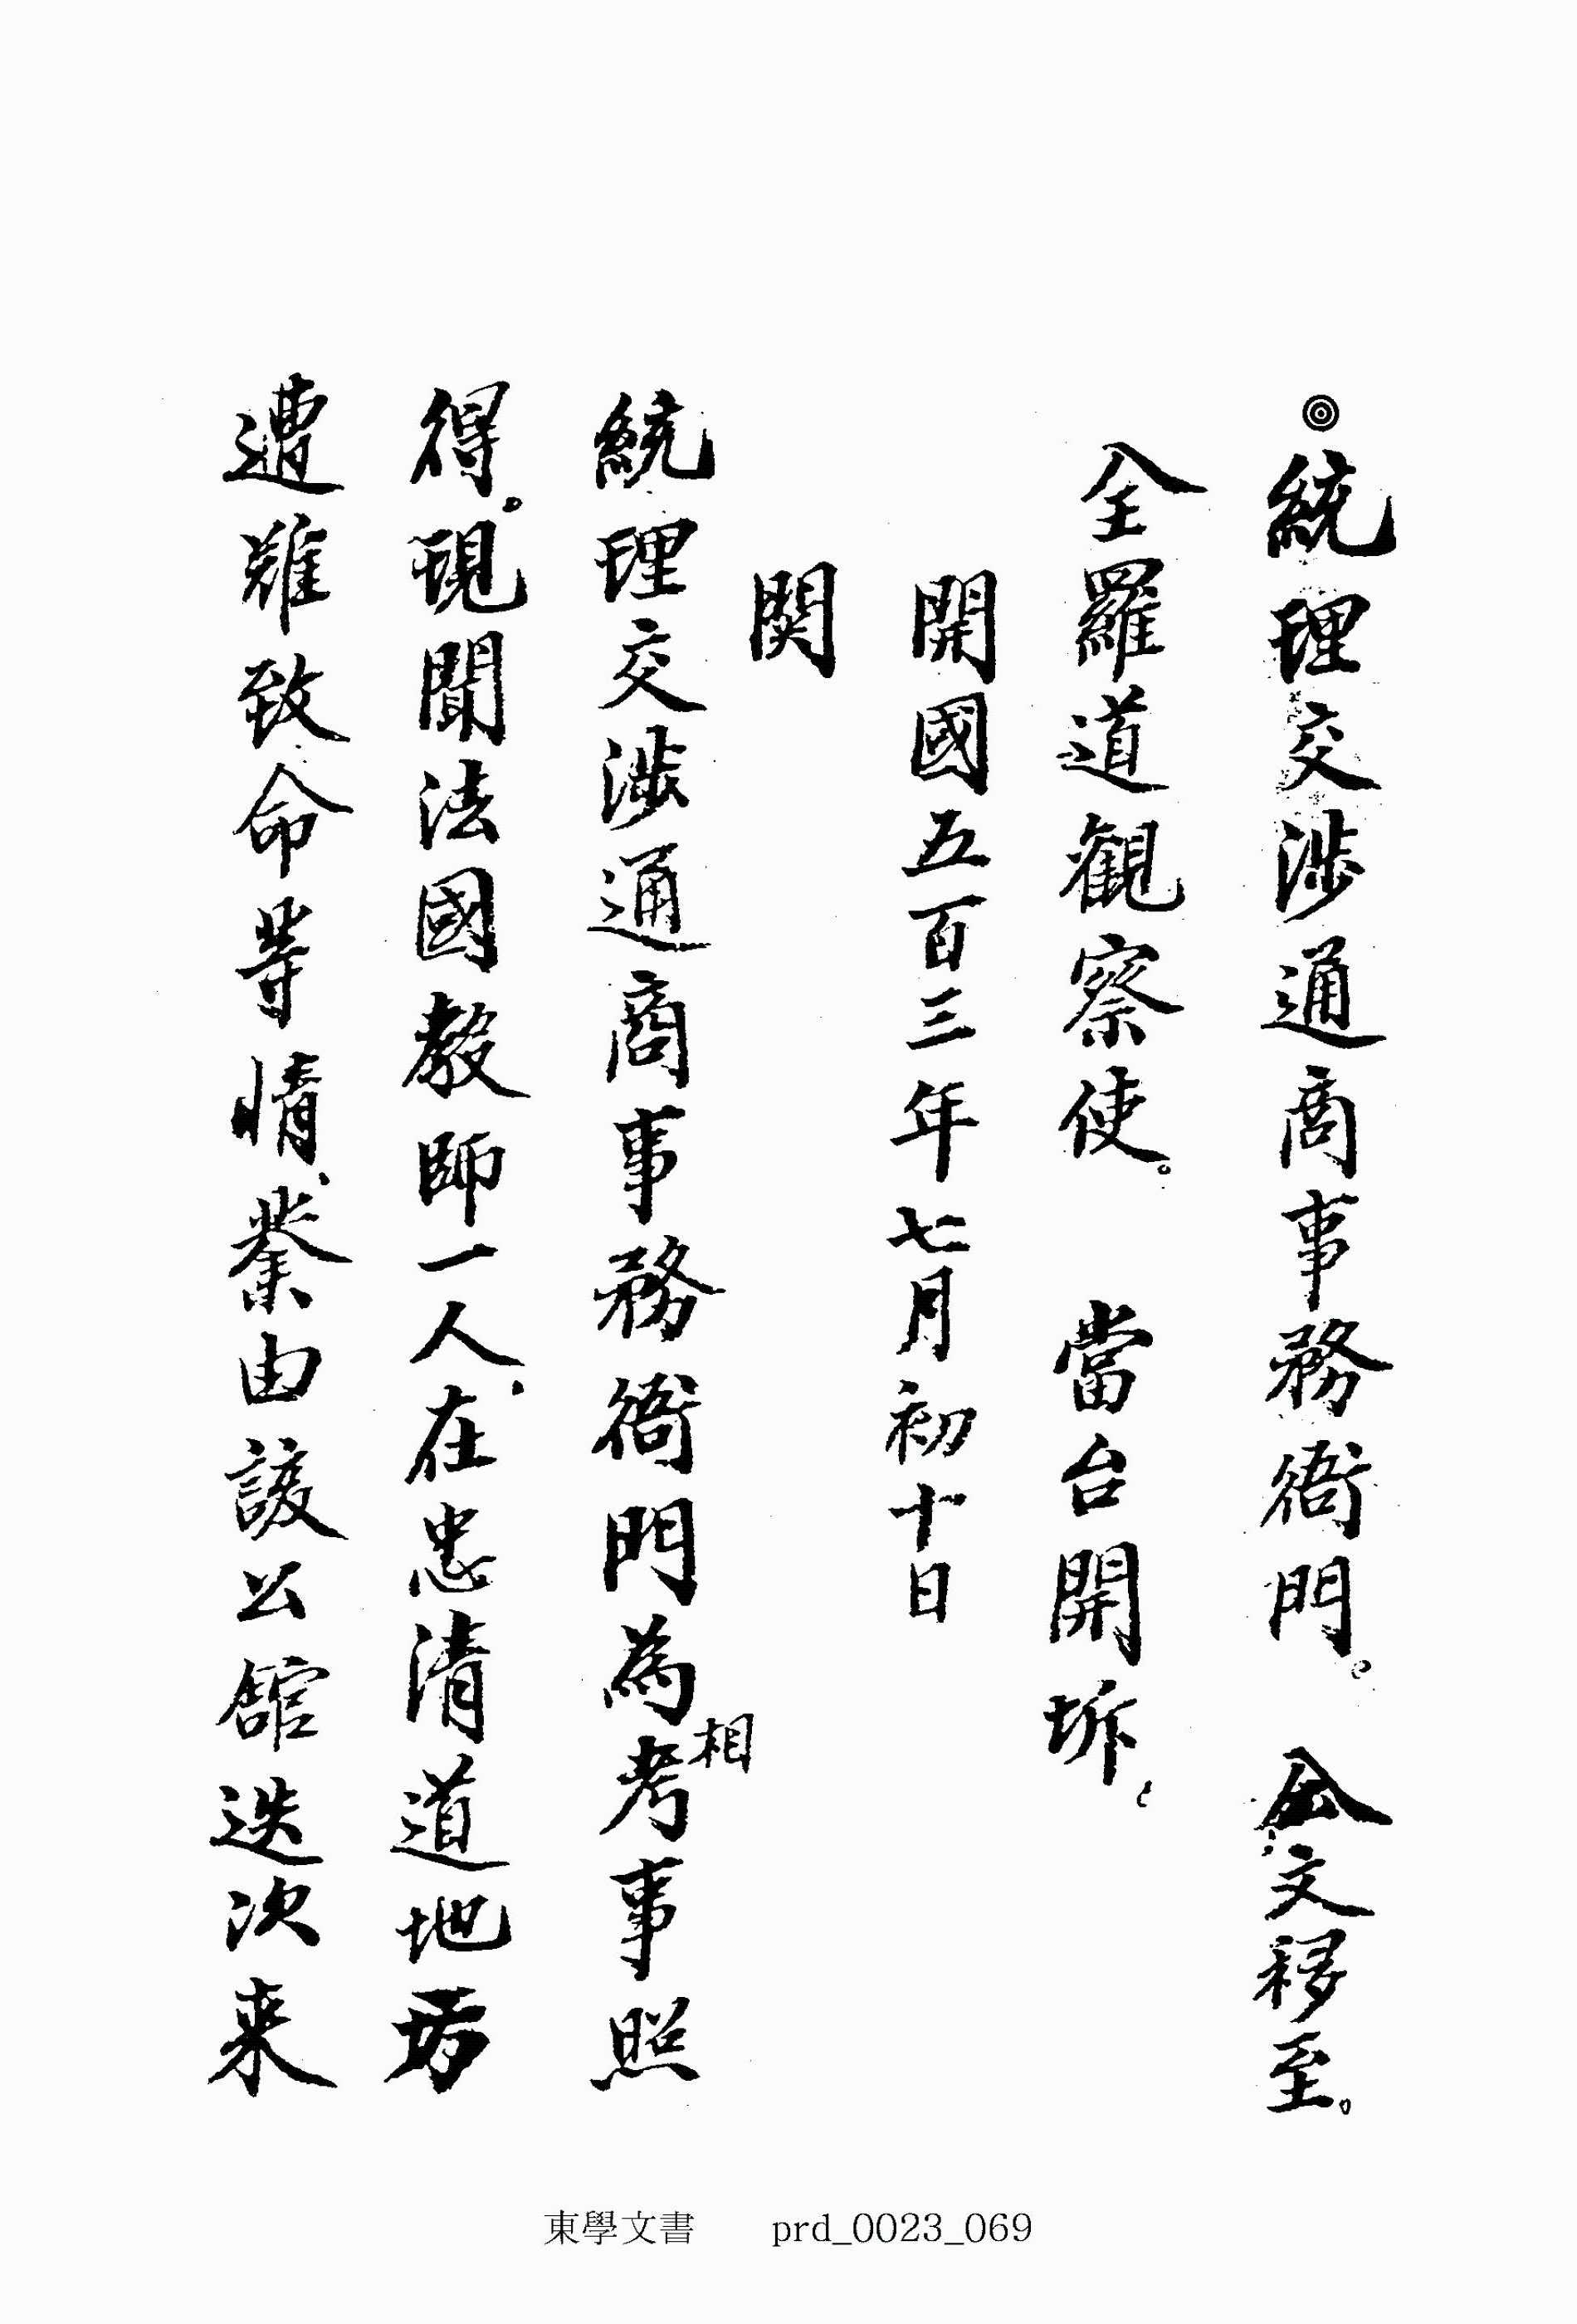 ◎統理交渉通商事務衙門。 公文移至。
全羅道觀察使。 當台開坼。
開國五百三年七月初十日
関
統理交渉通商事務衙門為相考事照
得。現聞法國教師一人、在忠清道地方
遭難致命等情、業由該公館迭次来
東學文書 prd_0023_069